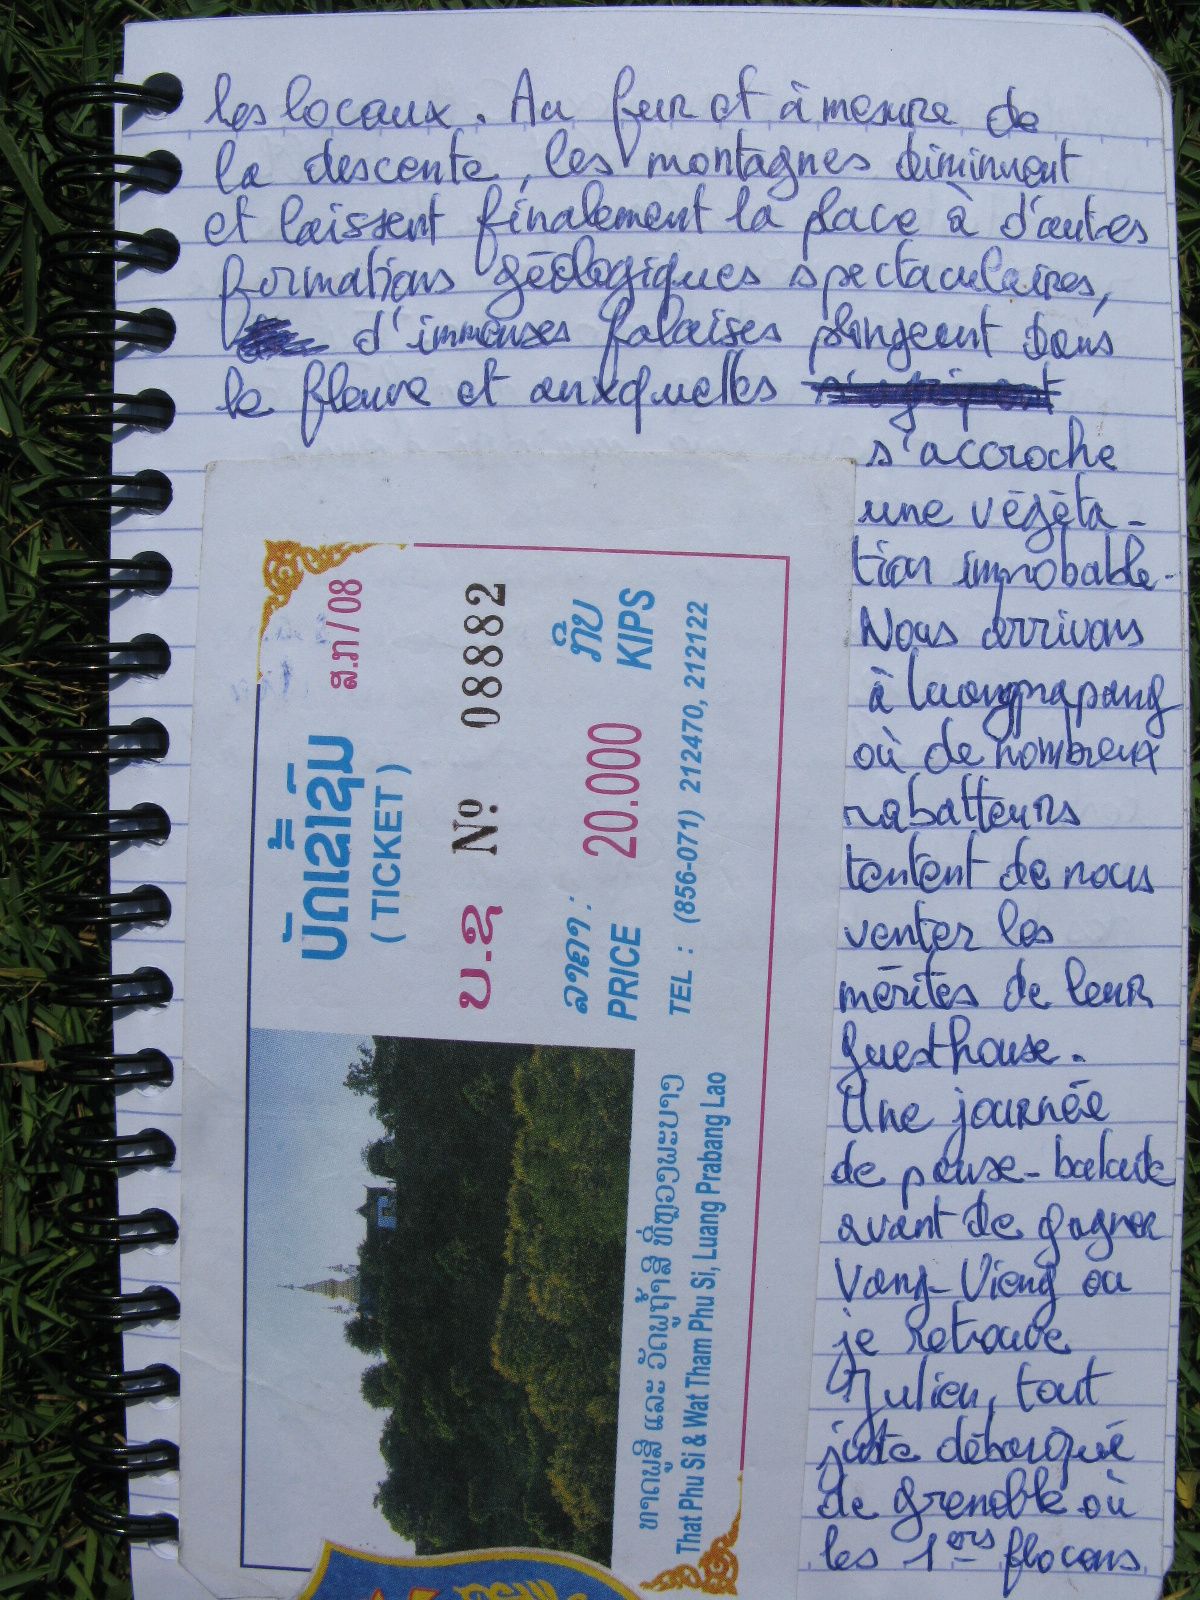 les locaux. Au fur et à mesure de
la descente, les montagnes diminuent
et laissent finalement la place à d'autres
formations géologiques spectaculaires,
d'immenses falaises plongeant dans
le fleuve et auxquelles
s'accroche
une végéta-
tion improbable.
Nous arrivons
à Luangprapang
où de nombreux
rabatteurs
tentent de nous
venter les
mérites de leur
guesthouse.
Une journée
de pause-balade
avant de gagner
Vang-Vieng ou
je retrouve
Julien, tout
juste débarqué
de Grenoble où
les 1ers flocons
ບັດເຂົ້າຊົມ
(TICKET)
ສ.ກ / 08
ບ.ຊ Nº 08882
ລາຄາ : 20.000 ກີບ
PRICE KIPS
TEL : (856-071) 212470, 212122
ທາດພູສີ ແລະ ວັດພູຖ້ຳສີ ທີ່ຫຼວງພະບາງ
That Phu Si & Wat Tham Phu Si, Luang Prabang Lao